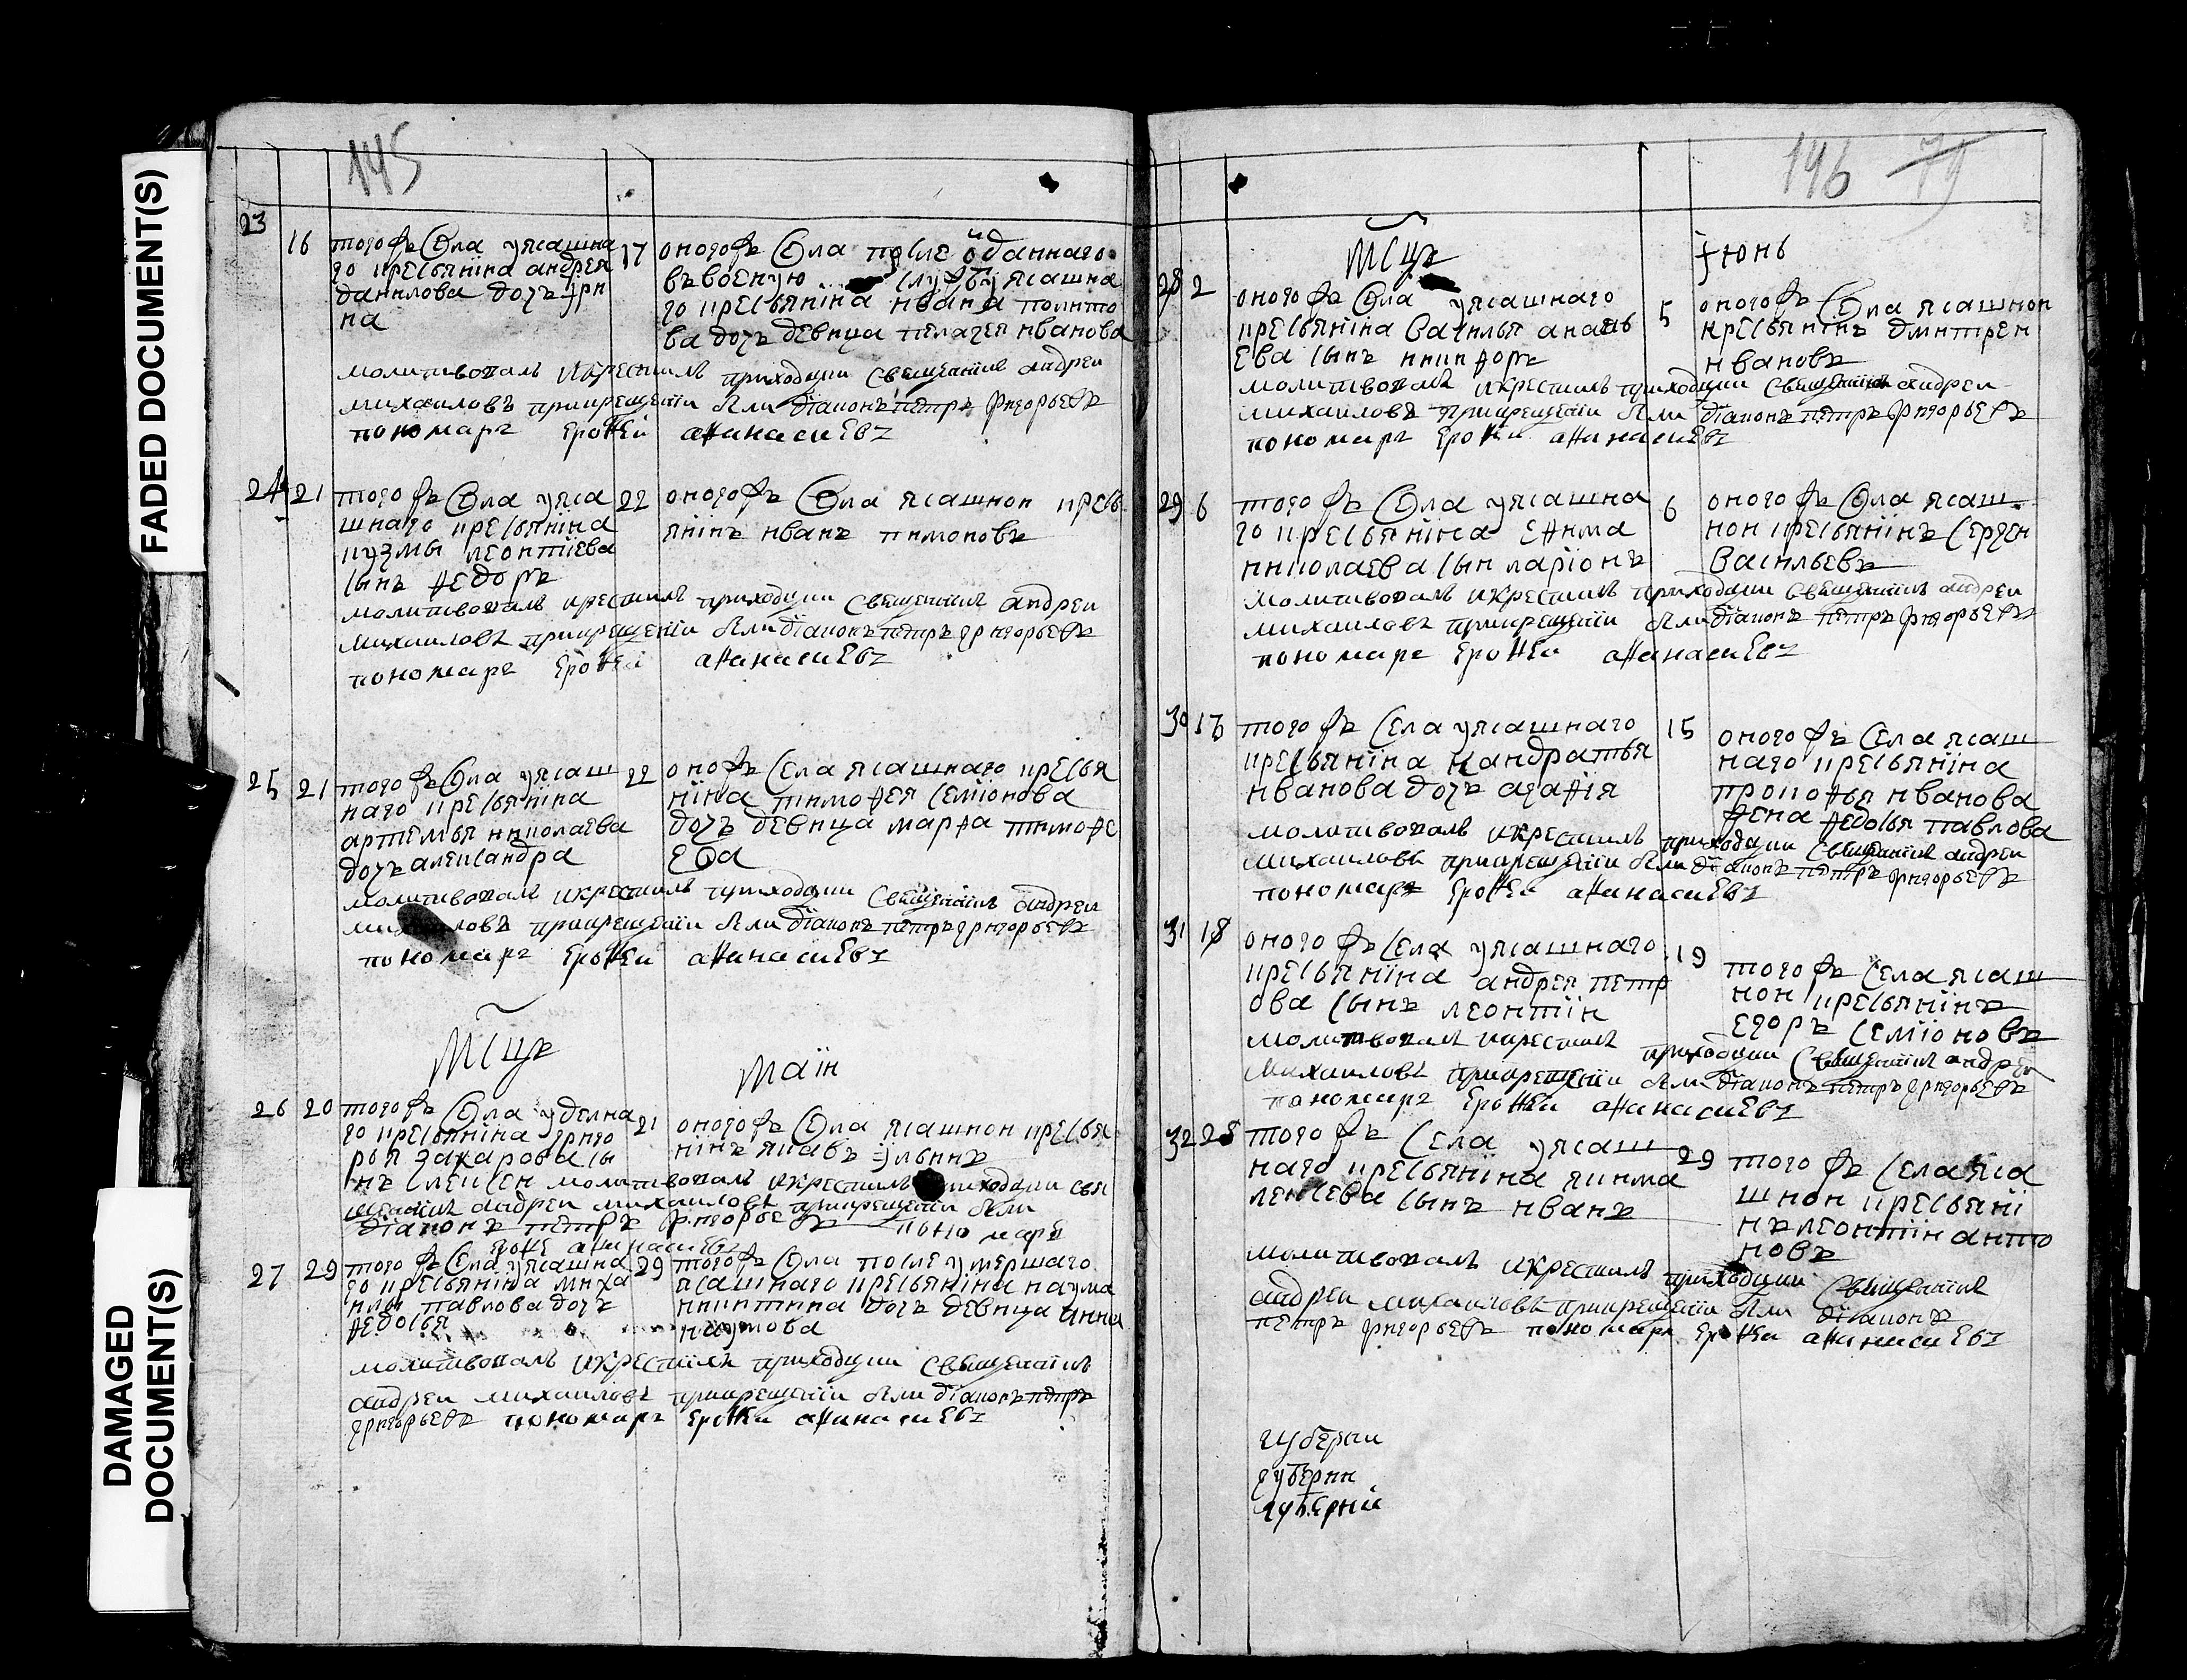 FADED DOCUMENT(S)
DAMAGED
DOCUMENT(S)
145
23
16
того жъ Села у ясашна
го крестьянїна андрея
данилова дочь ірн
на
17
оного жъ Села после ѿданнаго
въ военую службу ясашна
го крестьянїна ивана
ва дочь девица пелагея иванова
молитвовалъ и крестилъ приходцки священникъ андреи
михаиловъ при крещенїи были дїаконъ петръ григорьевъ
пономарь ерофеи афанасиевъ
24 21
того жъ Села у яса
шнаго крестьянїна
кузмы леонтїева
сынъ федоръ
22
оного жъ Села ясашнои кресть
янїнъ иванъ пимоновъ
молитвовалъ и крестилъ приходцки священникъ андреи
михаиловъ при крещенїи были дїаконъ петръ григорьевъ
пономарь ерофеи афанасиевъ
25 21
того жъ Села у ясаш
наго крестьянїна
артемья николаева
дочь александра
22
оно жъ Села ясашнаго крестья
нїна тимофея семїонова
дочь девица марфа тимофе
ева
молитвовалъ и крестилъ приходцки священникъ андреи
михаиловъ при крещенїи были дїаконъ петръ григорьевъ
пономарь ерофеи афанасиевъ
мсцъ маїи
26 20
того жъ Села у делна
го крестьянїна григо
рья захарова сы
нъ алексеи
21
оного жъ Села ясашнои крестья
нїнъ яковъ ильинъ
молитвовалъ и крестилъ приходцки свя
щеникъ андреи михаиловъ при крещенїи были
дїаконъ петръ григорьевъ пономарь
ерофе афанасиевъ
27 29
того жъ Села у ясашна
го крестьянїна миха
илы павлова дочь
федосья
29
того жъ Села после умершаго
ясашнаго крестьянїна наума
никитина дочь девица анна
наумова
молитвовалъ и крестилъ приходцки священникъ
андреи михаиловъ при крещенїи были дїаконъ петръ
григорьевъ пономарь ерофеи афанасиевъ
146 79
мсцъ іюнь
28 2
оного жъ Села у ясашнаго
крестьянїна василья анань
ева сынъ никифоръ
5
оного жъ Села ясашнои
крестьянїнъ дмитреи
ивановъ
молитвовалъ и крестилъ приходцки священникъ андреи
михаиловъ при крещенїи были дїаконъ петръ григорьевъ
пономарь ерофеи афанасиевъ
29 6
того жъ Села у ясашна
го крестьянїна ефима
николаева сын ларїонъ
6
оного жъ Села ясаш
нои крестьянїнъ сергеи
васильевъ
молитвовалъ и крестилъ приходцки священникъ андреи
михаиловъ при крещенїи были дїаконъ петръ григорьевъ
пономарь ерофеи афанасиевъ
30 13
того жъ Села у ясашнаго
крестьянїна кандратья
иванова дочь агафїя
15
оного жъ Села ясаш
наго крестьянїна
прокофья иванова
жена федосья павлова
молитвовалъ и крестилъ приходцки священникъ андреи
михаиловъ при крещенїи были дїаконъ петръ григорьевъ
пономарь ерофеи афанасиевъ
31 18
оного жъ Села у ясашнаго
крестьянїна андрея петр
ова сынъ леонтїи
19
того жъ Села ясаш
нои крестьянїнъ
егоръ семїоновъ
молитвовалъ и крестилъ приходцки священникъ андреи
михаиловъ при крещенїи были дїаконъ петръ григорьевъ
пономарь ерофеи афанасиевъ
32 28
того жъ Села у ясаш
наго крестьянїна якима
алексева сынъ иванъ
29
того жъ Села яса
шнои крестьянї
нъ леонтїи анто
новъ
молитвовалъ и крестилъ приходцки священникъ
андреи михаиловъ при крещенїи были дїаконъ
петръ григорьевъ пономарь ерофеи афанасиевъ
губерни
губерни
губерни